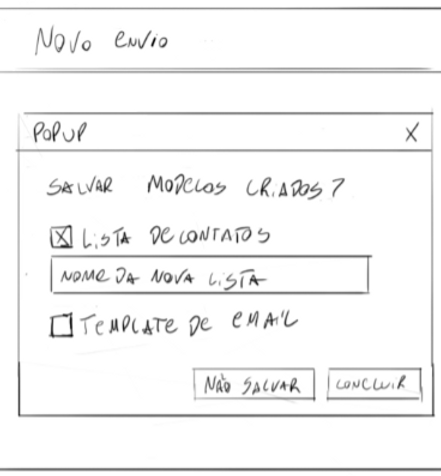 Novo envio
POPUP X
SALVAR MODELOS CRIADOS?
LISTA DE CONTATOS
NOME DA NOVA LISTA
TEMPLATE DE EMAIL
NÃO SALVAR CONCLUIR